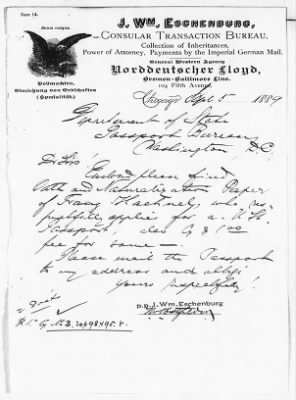 J. WM. ESCHENBURG,
CONSULAR TRANSACTION BUREAU.
Collection of Inheritances.
Power of Attorney, Payments by the Imperial German Mail.
General Western Agency
Norddeutscher Lloyd,
Bremen-Baltimore Line.
104 Fifth Avenue.
Vollmachten,
Einziehung von Erbschaften
(Spezialität.)
Chicago Apr 1889
Department of State
Passport Bureau
Washington, D.C.
Dr Sirs! Enclosed please find
Oath and Naturalization Paper
of Franz who re-
spectfully applies for a U.S.
Passport, also 1.00
fee for same —
Please mail the Passport
to my address and oblige
Yours respectfully!
p.p. J. Wm. Eschenburg